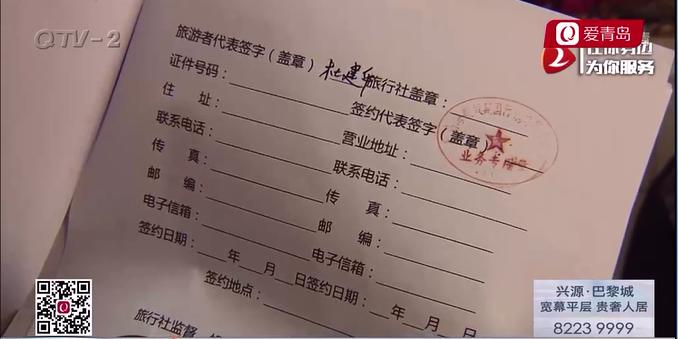 QTV-2
爱青岛
在你身边
为你服务
旅游者代表签字（盖章） 杜建华
旅行社盖章：
证件号码：
签约代表签字（盖章）
住 址：
营业地址：
联系电话：
联系电话：
传 真：
传 真：
邮 编：
邮 编：
电子信箱：
电子信箱：
签约日期： 年 月 日
签约日期： 年 月 日
签约地点：
旅行社监督
业务专用章
兴源·巴黎城
宽幕平层 贵奢人居
8223 9999